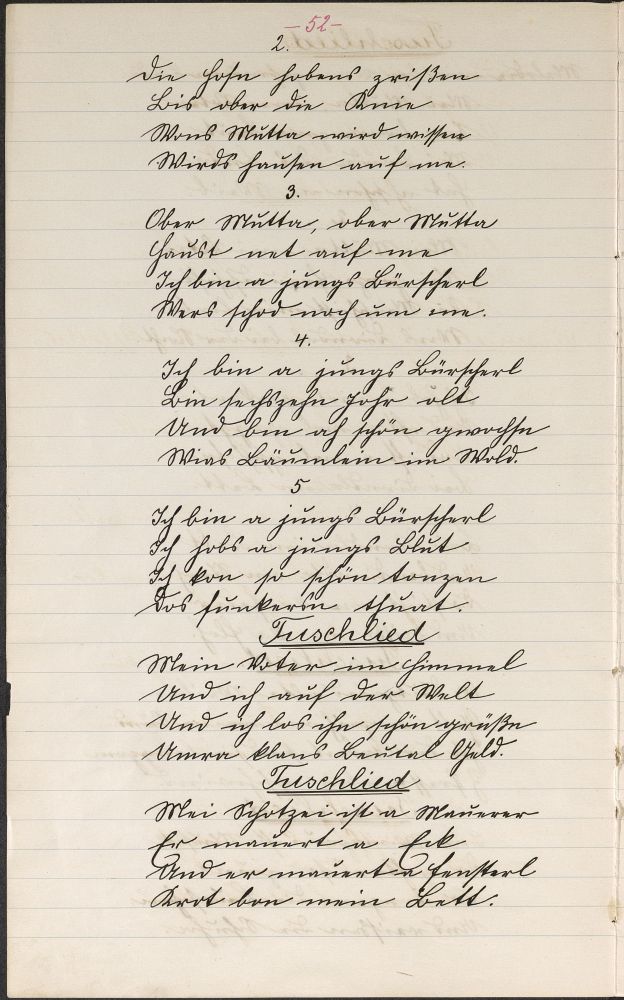 - 52 -
2.
Die Hosn hobens zrißen
Bis ober die Knie
Wons Mutta wird wissen
Wirds hausen auf me.
3.
Ober Mutta, ober Mutta
Haust net auf me
Ich bin a jungs Bürscherl
Wers schod noch um me.
4.
Ich bin a jungs Bürscherl
Bin sechszehn Johr olt
Und bin ah schön gwochsn
Wias Bäumlein im Wold.
5
Ich bin a jungs Bürscherl
Ich hobs a jungs Blut
Ich kon so schön tonzen
Dos funkersn thuat.
Tuschlied
Mein Voter im Himmel
Und ich auf der Welt
Und ich los ihn schön grüßn
Umra klans Beutal Geld.
Tuschlied
Mei Schotzei ist a Mauerer
Er mauert a Eck
Und er mauert a Fensterl
Krot bon mein Bett.